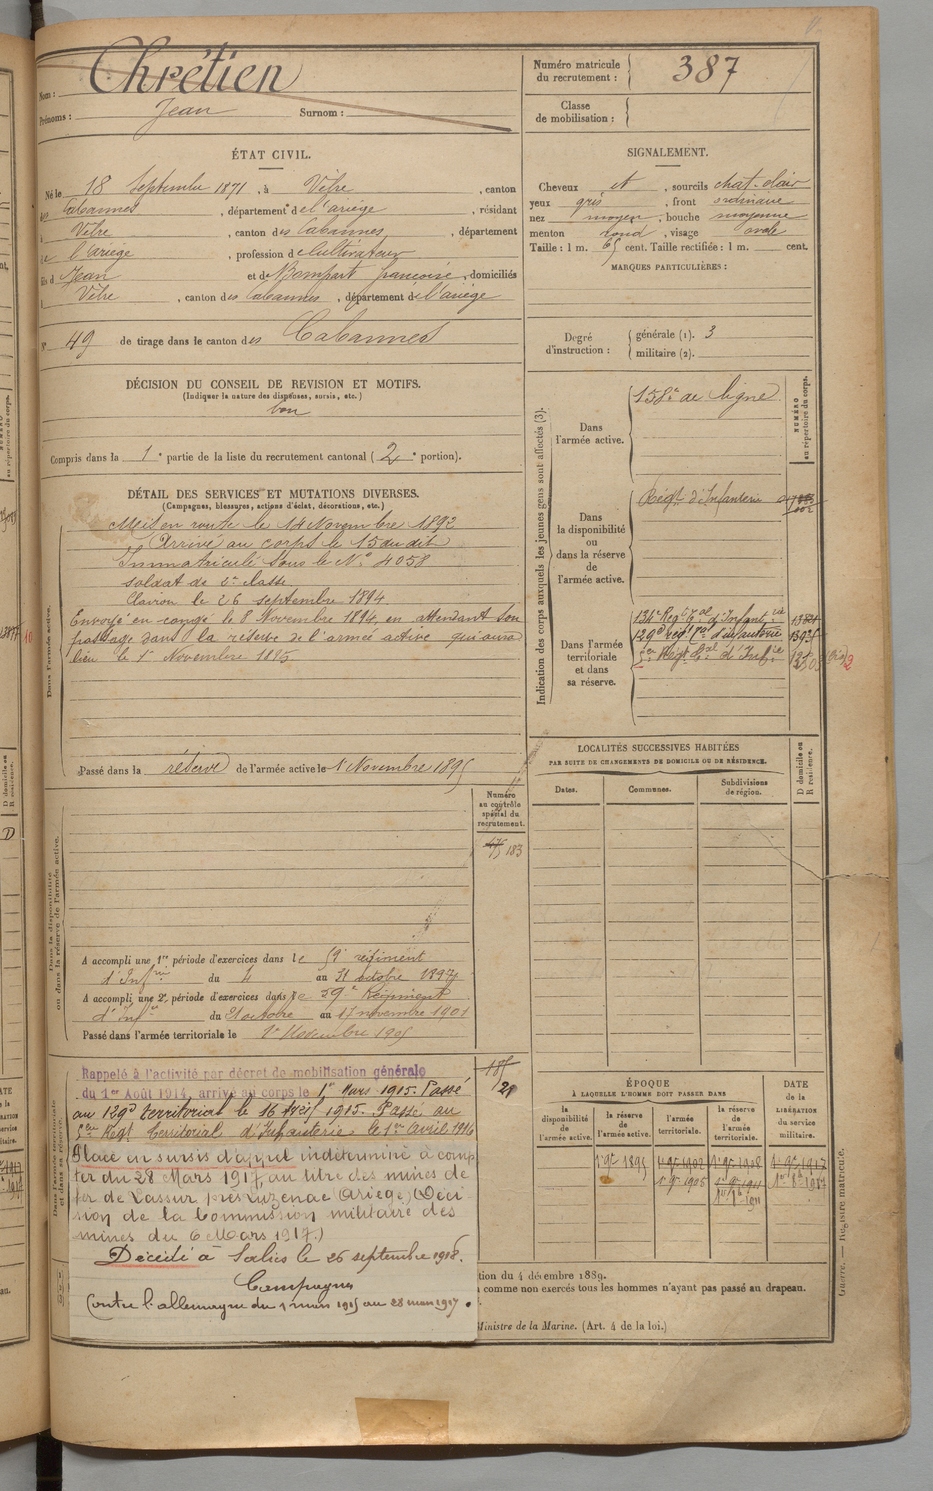 Nom : Chrétien
Prénoms : Jean Surnom :
Numéro matricule du recrutement : 387
Classe de mobilisation :
ÉTAT CIVIL.
Né le 18 Septembre 1871, à Vèbre, canton
des Cabannes, département de l'ariège, résidant
à Vèbre, canton des Cabannes, département
de l'Ariège, profession de Cultivateur
fils de Jean et de Bompart françoise, domiciliés
à Vèbre, canton des Cabannes, département de l'ariège
N° 49 de tirage dans le canton des Cabannes
SIGNALEMENT.
Cheveux et, sourcils chat. clair
yeux gris, front ordinaire
nez moyen, bouche moyenne
menton rond, visage ovale
Taille : 1 m. 65 cent. Taille rectifiée : 1 m. cent.
MARQUES PARTICULIÈRES :
Degré d'instruction : générale (1). 3
militaire (2).
DÉCISION DU CONSEIL DE REVISION ET MOTIFS.
(Indiquer la nature des dispenses, sursis, etc.)
bon
Compris dans la 1e partie de la liste du recrutement cantonal (2e portion).
DÉTAIL DES SERVICES ET MUTATIONS DIVERSES.
(Campagnes, blessures, actions d'éclat, décorations, etc.)
Dans l'armée active.
Mis en route le 14 Novembre 1892
Arrivé au corps le 15 du dit
Immatriculé sous le N° 4058
soldat de 2e classe
Clairon le 26 septembre 1894
Envoyé en congé le 8 Novembre 1894, en attendant son
passage dans la réserve de l'armée active qui aura
lieu le 1er Novembre 1895
Passé dans la réserve de l'armée active le 1 Novembre 1895
Indication des corps auxquels les jeunes gens sont affectés (3).
NUMÉRO au répertoire du corps.
Dans l'armée active.
158e de ligne
Dans la disponibilité ou dans la réserve de l'armée active.
Régt d'Infanterie
Dans l'armée territoriale et dans sa réserve.
134e Régt Tal d'Infanterie
129e régt Tal d'infanterie
5e Régt Tal d'Infie
LOCALITÉS SUCCESSIVES HABITÉES
PAR SUITE DE CHANGEMENTS DE DOMICILE OU DE RÉSIDENCE.
Dates. Communes. Subdivisions de région. D domicile ou R résidence.
Dans la disponibilité ou dans la réserve de l'armée active.
Numéro au contrôle spécial du recrutement.
183
A accompli une 1re période d'exercices dans le 59e régiment
d'Infrie du 4 au 31 octobre 1897
A accompli une 2e période d'exercices dans le 59e Régiment
d'Infie du octobre au 17 novembre 1901
Passé dans l'armée territoriale le 1er Novembre 1905
Dans l'armée territoriale et dans sa réserve.
Rappelé à l'activité par décret de mobilisation générale
du 1er Août 1914, arrivé au corps le 1er Mars 1915. Passé
au 129e territorial le 16 1915. Passé au
5eme Régt territorial d'Infanterie, le 1er avril 1916
Placé en sursis d'appel indéterminé à comp
ter du 28 Mars 1917, au titre des mines de
fer de Lassur près Luzenac (Ariège) (Déci
sion de la Commission militaire des
mines du 6 Mars 1917.)
Décédé à Salies le 26 septembre 1918.
Campagnes
Contre l'allemagne du 1 mars 1915 au 28 mars 1917.
ÉPOQUE
À LAQUELLE L'HOMME DOIT PASSER DANS
la disponibilité de l'armée active. la réserve de l'armée active. l'armée territoriale. la réserve de l'armée territoriale.
DATE de la LIBÉRATION du service militaire.
1er 9bre 1895
1er 9bre 1905
tion du 4 décembre 1889.
comme non exercés tous les hommes n'ayant pas passé au drapeau.
Ministre de la Marine. (Art. 4 de la loi.)
Guerre. — Registre matricule.